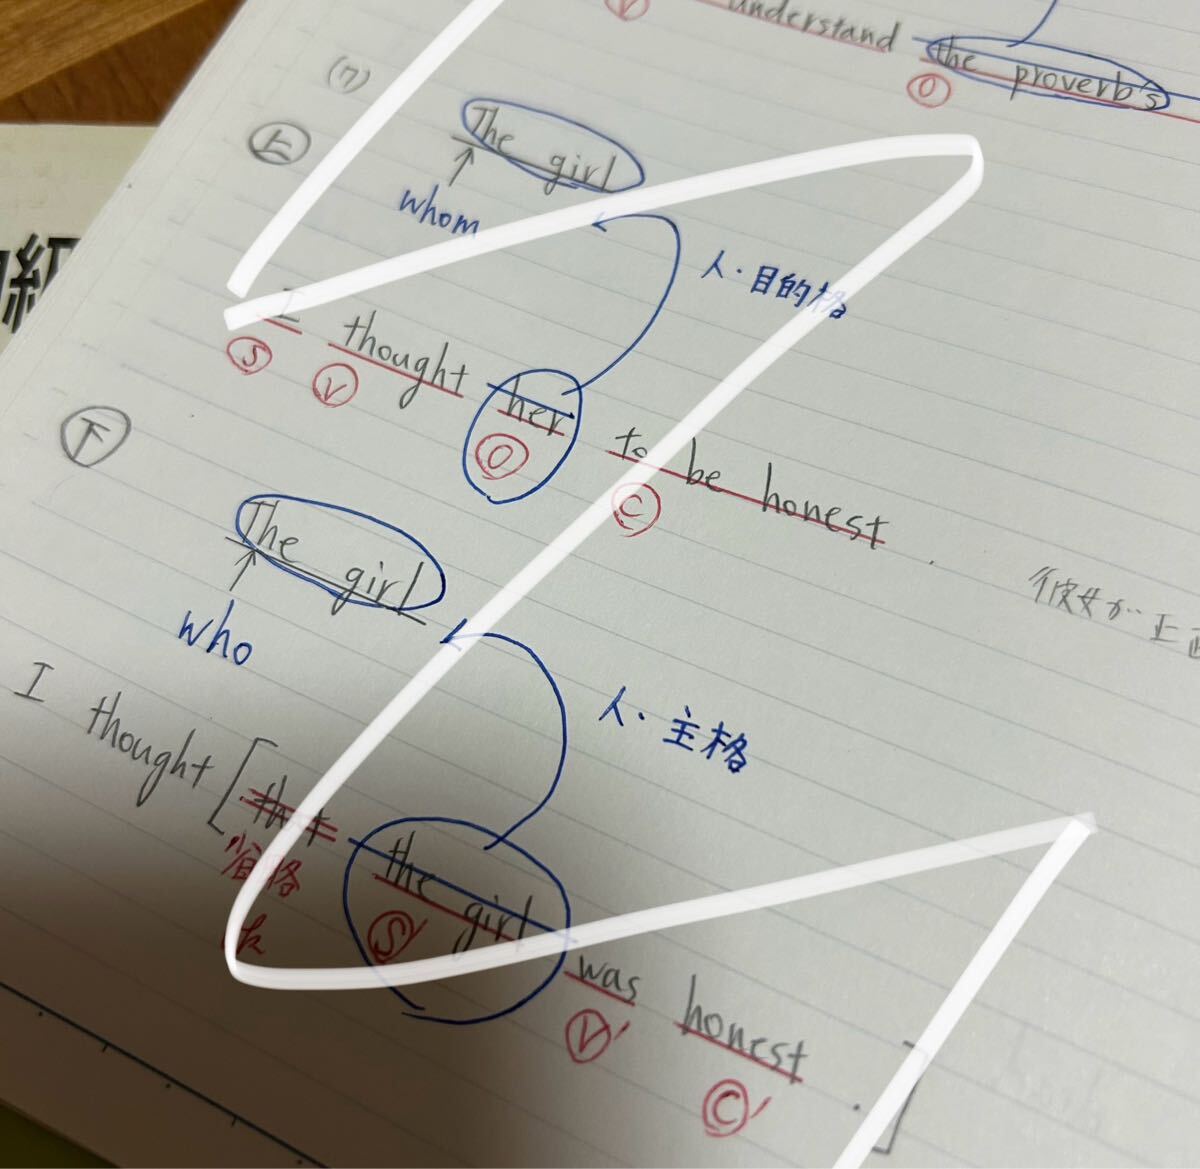 understand the proverb's
Ⓥ Ⓞ
(7)
㊤ The girl
↑
whom
人・目的格
I thought her to be honest.
Ⓢ Ⓥ Ⓞ Ⓒ
彼女が正
㊦ The girl
↑
who
人・主格
I thought [that the girl was honest.]
省略
Ⓢ′ Ⓥ′ Ⓒ′